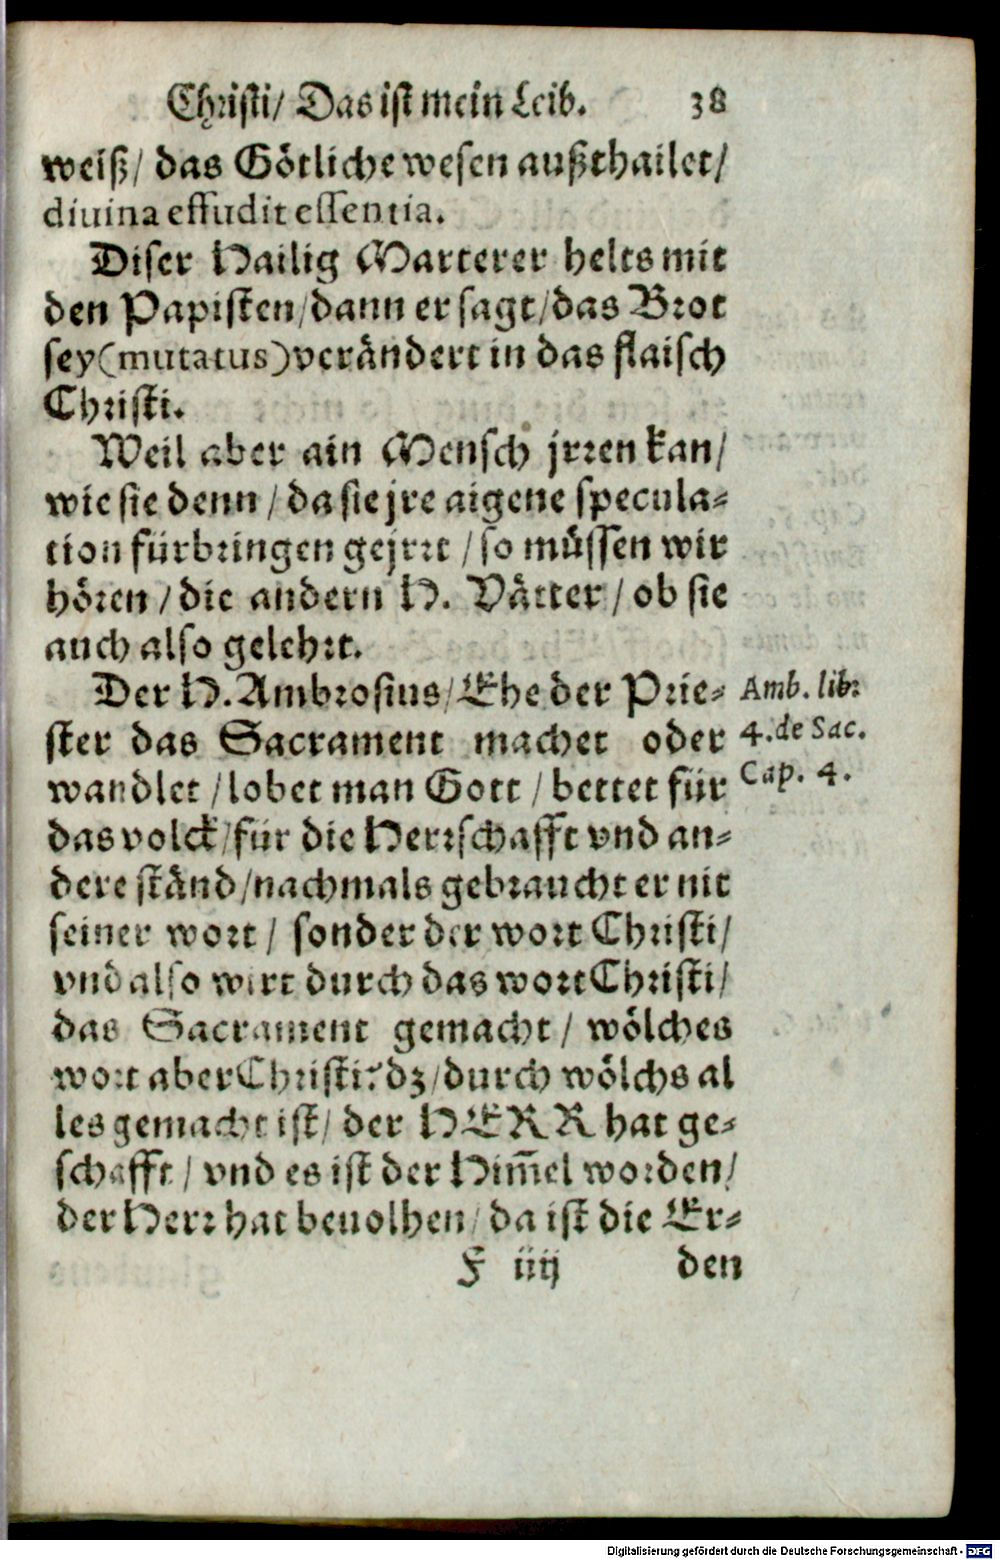 Christi/ Das ist mein Leib. 38
weiß/ das Götliche wesen außthailet/
diuina effudit essentia.
Diser Hailig Marterer helts mit
den Papisten/dann er sagt/das Brot
sey(mutatus)verändert in das flaisch
Christi.
Weil aber ain Mensch jrren kan/
wie sie denn/da sie jre aigene specula-
tion fürbringen gejrrt/so müssen wir
hören/die andern H. Vätter/ob sie
auch also gelehrt.
Der H. Ambrosius/Ehe der Prie-
ster das Sacrament machet oder
wandlet/lobet man Gott/bettet für
das volck/für die Herrschafft vnd an-
dere ständ/nachmals gebraucht er nit
seiner wort/ sonder der wort Christi/
vnd also wirt durch das wort Christi/
das Sacrament gemacht/ wölches
wort aber Christi? dz/durch wölchs al
les gemacht ist/ der HERR hat ge-
schafft/ vnd es ist der Him̃el worden/
der Herr hat beuolhen/da ist die Er-
F iiij den
Amb. lib:
4. de Sac.
Cap. 4.
Digitalisierung gefördert durch die Deutsche Forschungsgemeinschaft - DFG